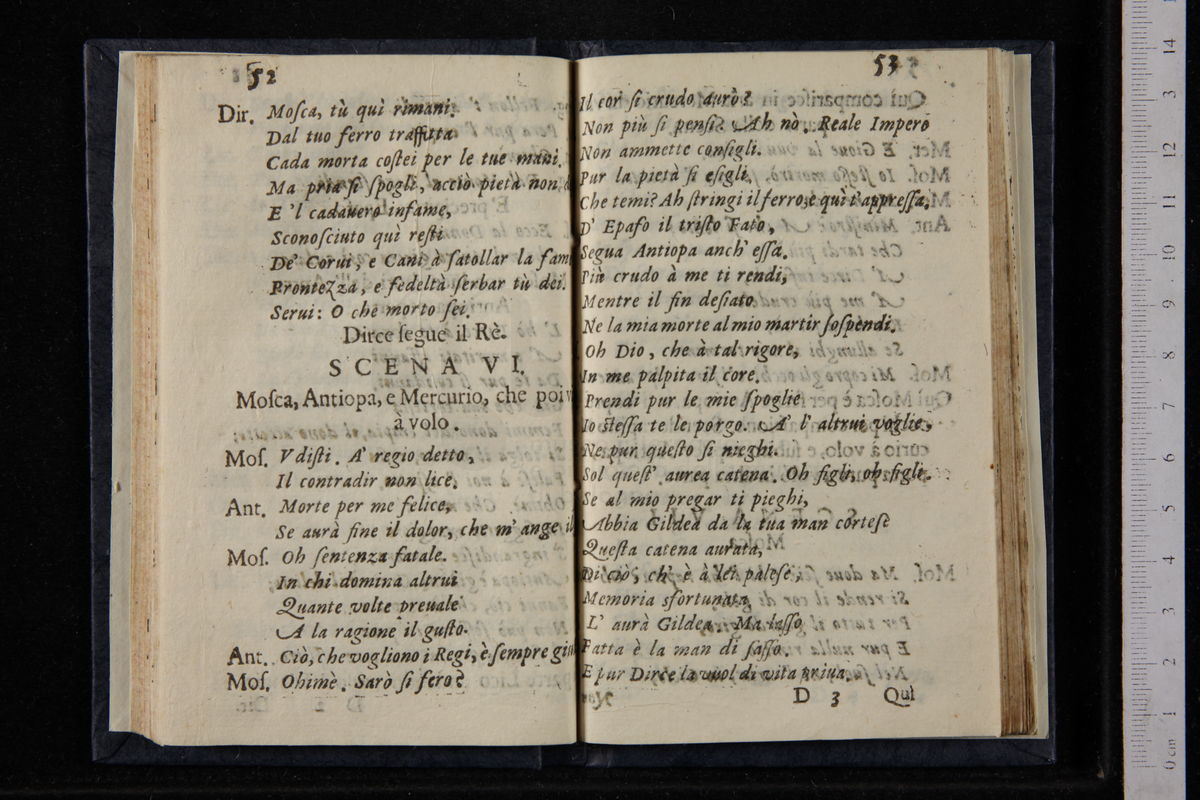 52
Dir. Moſca, tù quì rimani.
Dal tuo ferro traffitta
Cada morta coſtei per le tue mani.
Ma pria ſi ſpogli, acciò pietà non
E 'l cadauero infame,
Sconoſciuto quì reſti
De' Corui, e Cani à ſatollar la fam
Prontezza, e fedeltà ſerbar tù dei.
Serui: O che morto ſei.
Dirce ſegue il Rè.
SCENA VI.
Moſca, Antiopa, e Mercurio, che poi
à volo.
Moſ. Vdiſti. A' regio detto,
Il contradir non lice.
Ant. Morte per me felice,
Se aurà fine il dolor, che m' ange il
Moſ. Oh ſentenza fatale.
In chi domina altrui
Quante volte preuale
A la ragione il guſto.
Ant. Ciò, che vogliono i Regi, è ſempre giu
Moſ. Ohimè. Sarò ſi fero?
53
Il cor ſi crudo aurò?
Non più ſi penſi? Ah nò. Reale Impero
Non ammette conſigli.
Pur la pietà ſi eſigli.
Che temi? Ah ſtringi il ferro, e quì t'appreſſa.
D' Epafo il triſto Fato,
Segua Antiopa anch' eſſa.
Più crudo à me ti rendi,
Mentre il fin deſiato
Ne la mia morte al mio martir ſoſpendi.
Oh Dio, che à tal rigore,
In me palpita il core.
Prendi pur le mie ſpoglie
Io ſteſſa te le porgo. A' l' altrui voglie,
Ne pur queſto ſi nieghi.
Sol queſt' aurea catena. Oh figli, oh figli.
Se al mio pregar ti pieghi,
Abbia Gildea da la tua man corteſe
Queſta catena aurata,
Di ciò, ch' è à lei paleſe,
Memoria sfortunata
L' aurà Gildea. Ma laſſo
Fatta è la man di ſaſſo.
E pur Dirce la vuol di vita priua.
D 3 Quì